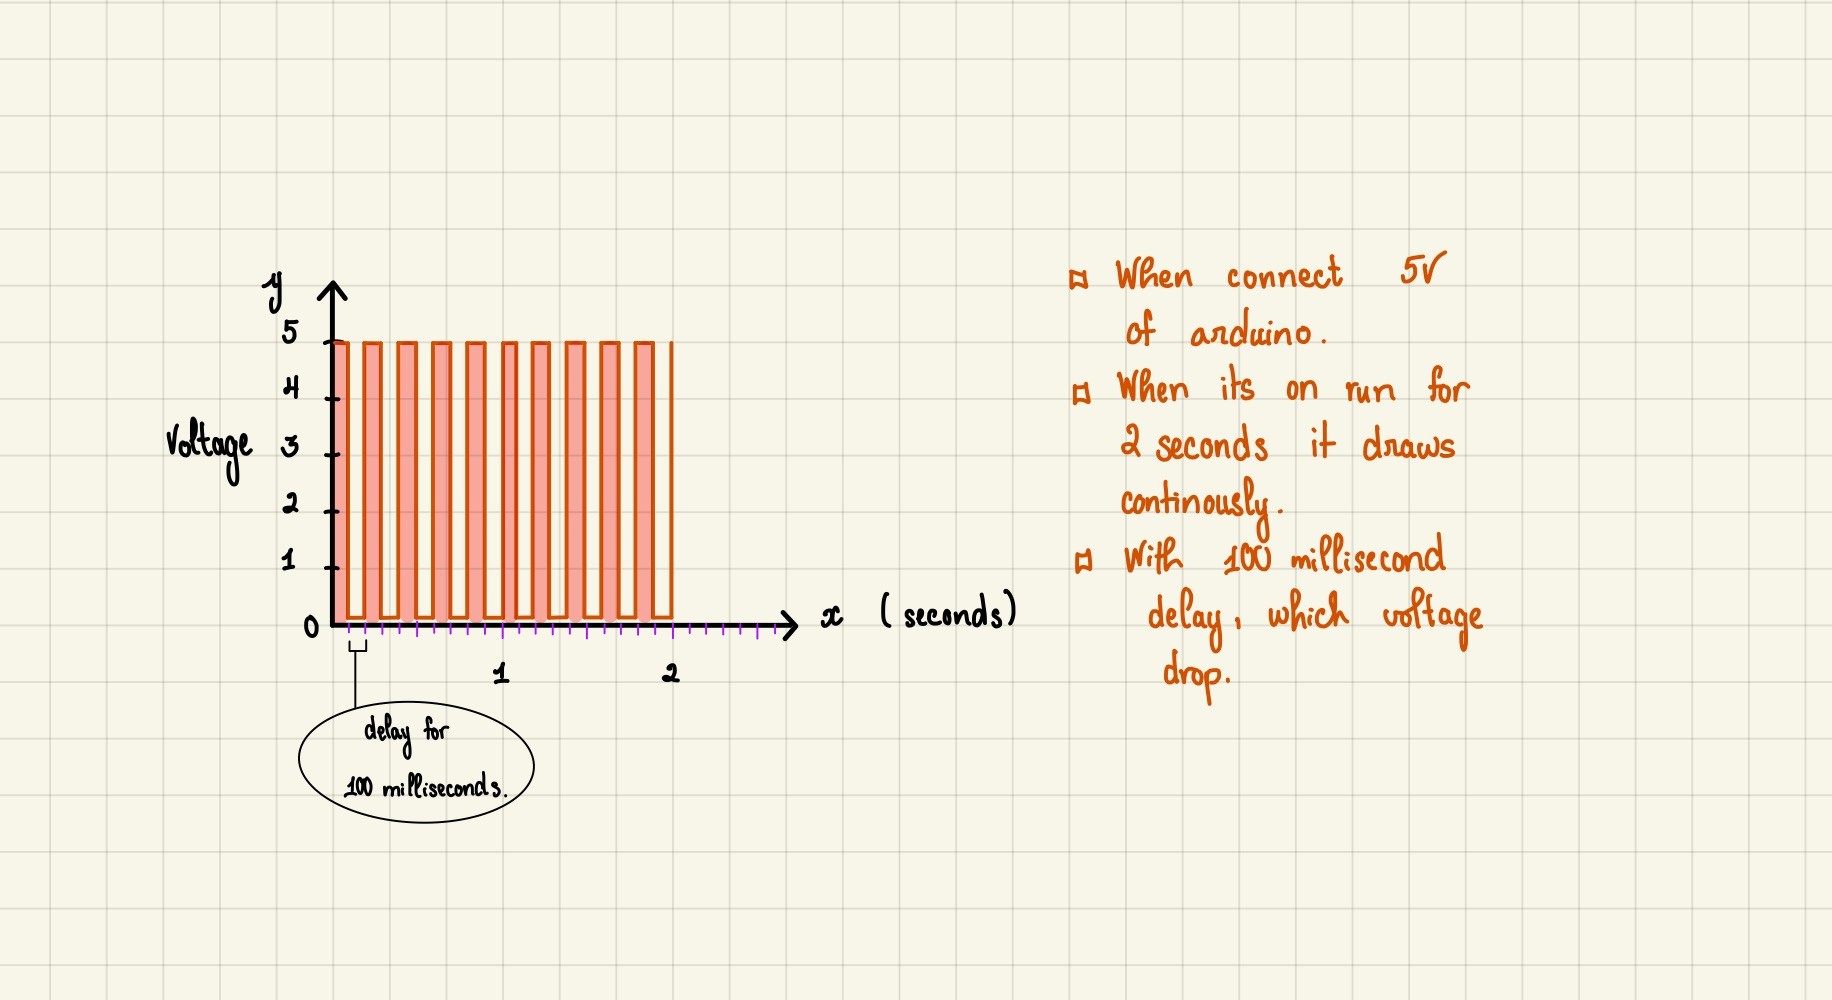 y
5
4
3
2
1
0
Voltage
x (seconds)
1
2
delay for
100 milliseconds.
When connect 5V
of arduino.
When its on run for
2 seconds it draws
continously.
With 100 millisecond
delay, which voltage
drop.